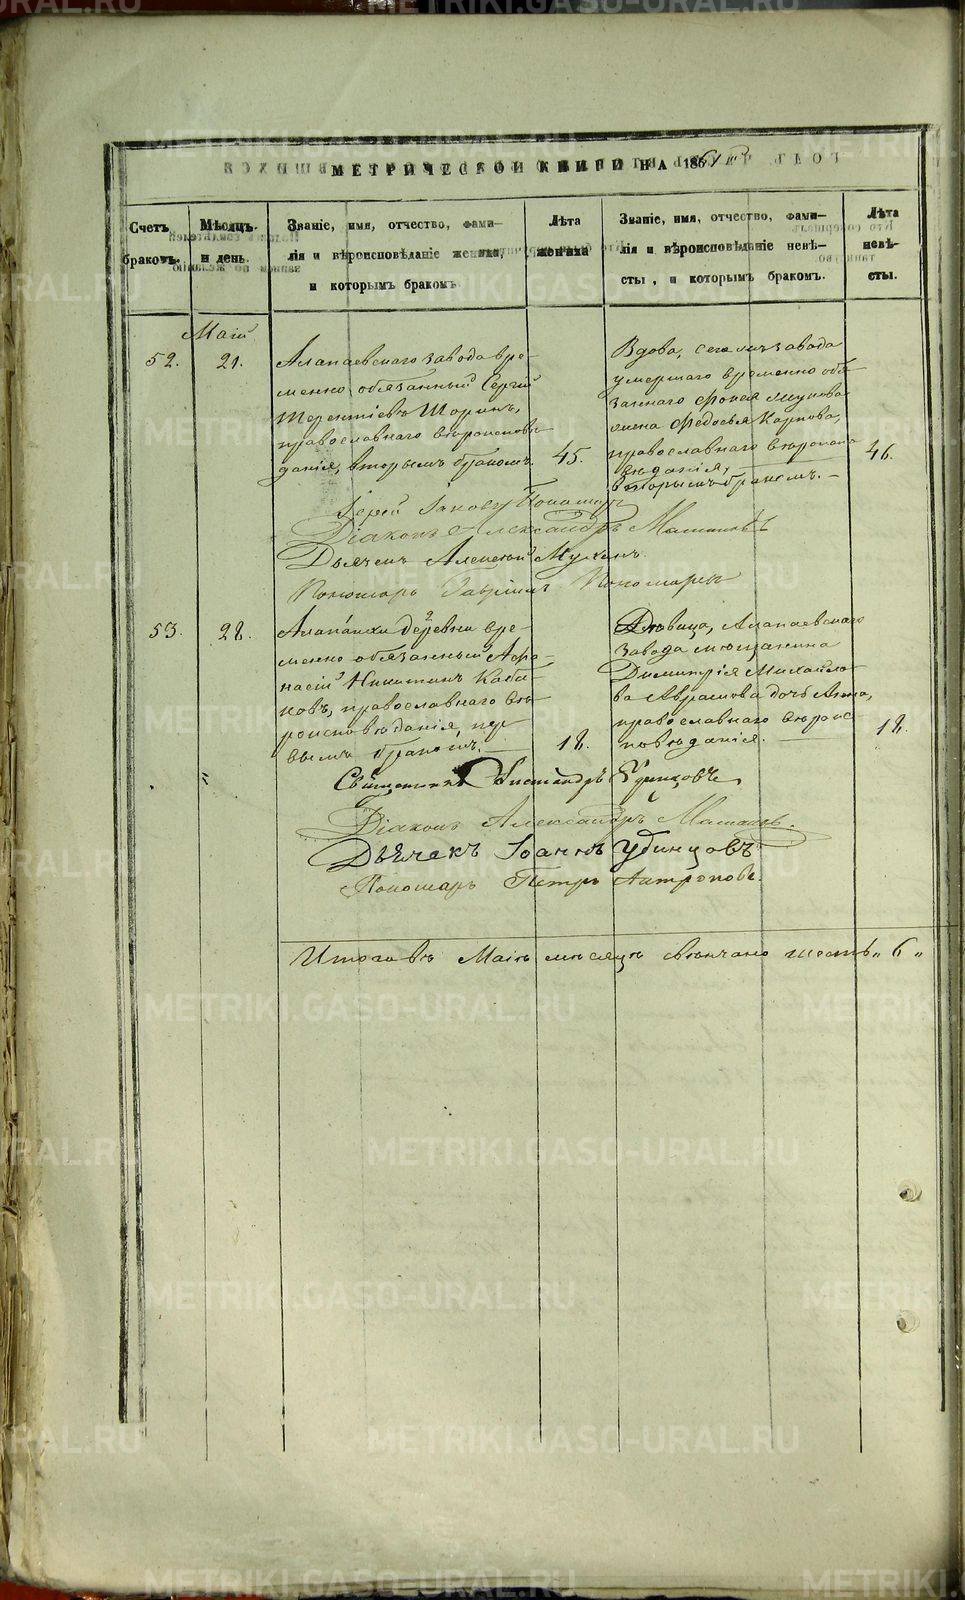 МЕТРИЧЕСКОЙ КНИГИ НА 186
Счетъ браковъ.
Мѣсяцъ и день.
Званіе, имя, отчество, фами-
лія и вѣроисповѣданіе жениха,
и которымъ бракомъ.
Лѣта жениха
Званіе, имя, отчество, фами-
лія и вѣроисповѣданіе невѣ-
сты, и которымъ бракомъ.
Лѣта невѣ-
сты.
Маій
52.
21.
Алапаевскаго завода вре-
менно обязанный Сергій
Терентіевъ Шоринъ,
православнаго вѣроисповѣ-
данія, вторымъ бракомъ.
45.
Вдова, сего же завода
умершаго временно обя-
заннаго
жена Федосья Карпова,
православнаго вѣроиспо-
вѣданія,
вторымъ бракомъ.
46.
Іерей Іаковъ
Діаконъ Александръ
Дьячекъ Алексій
Пономарь Гавріилъ
53.
28.
деревни вре-
менно обязанный Афа-
насій Никитинъ Каба-
ковъ, православнаго вѣ-
роисповѣданія, пер-
вымъ бракомъ.
18.
Дѣвица, Алапаевскаго
завода мѣщанина
Димитрія Михайло-
ва Абрамова дочь Анна,
православнаго вѣроис-
повѣданія.
18.
Священникъ Удинцовъ
Діаконъ Александръ
Дьячекъ Іоаннъ Удинцовъ
Пономарь Петръ Антроповъ.
Итого въ Маіѣ мѣсяцѣ свѣнчано шесть „6„
METRIKI.GASO-URAL.RU